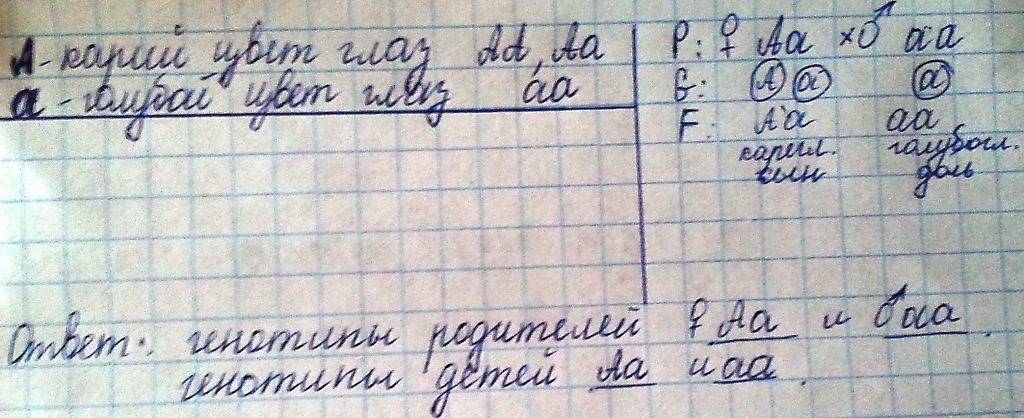 А - карий цвет глаз АА, Аа
а - голубой цвет глаз аа
Р: ♀ Аа × ♂ аа
G: А а а
F: Аа аа
кареглаз. голубогл.
сын дочь
Ответ: генотипы родителей ♀ Аа и ♂ аа.
генотипы детей Аа и аа.